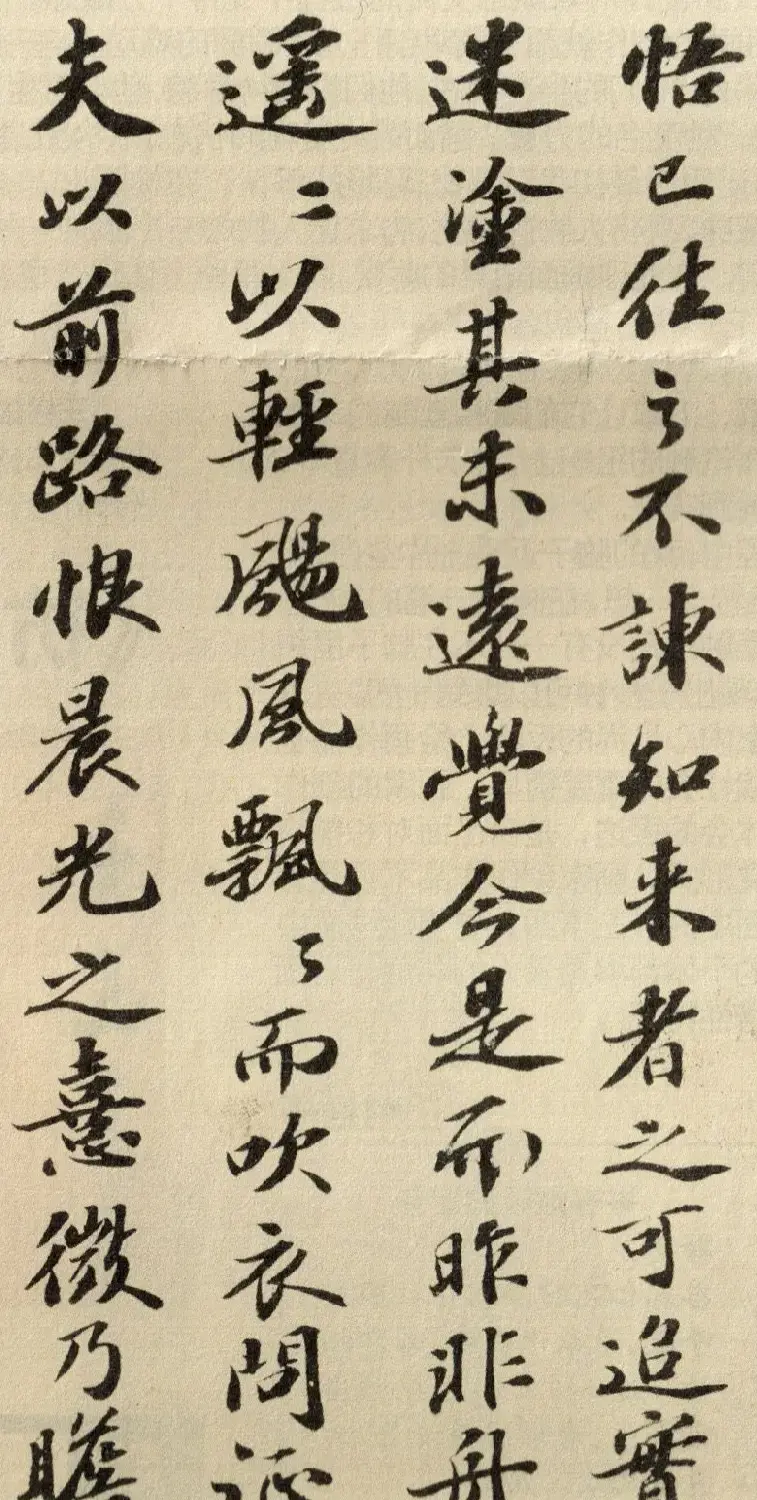 悟已往之不諫知来者之可追實
迷塗其未遠覺今是而昨非舟
遥々以輕颺風飄々而吹衣問征
夫以前路恨晨光之憙微乃瞻